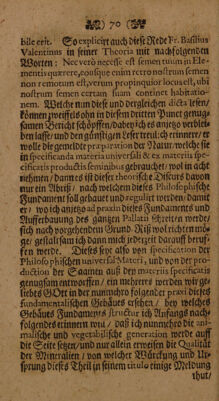 70
bile erit. So explicirt auch diese Rede Fr. Basilius
Valentinus in seiner Theoria mit nachfolgenden
Worten: Nec verò necesse est semen tuum in Ele-
mentis quærere, eousque enim retro nostrum semen
non remotum est, verum propinquior locus est, ubi
nostrum semen certam suam continet habitatio-
nem. Welche nun diese und dergleichen dicta lesen/
können zweiffels ohn in diesem dritten Punct genug-
samen Bericht schöpffen/ dabey ich es anietzo verblei-
den lasse/ und den günstigen Leser treulich erinnere/ er
wolle die gemeldte præparation der Natur/ welche sie
in specificanda materia universali & ex materiis spe-
cificatis productis seminibus gebrauchet/ wol in acht
nehmen/ dann es ist dieser theorische Discurs davon
nur ein Abriß/ nach welchem dieses Philosophische
Fundament soll gebauet und regulirt werden/ damit
er/ wo ich anietzo ad praxin dieses Fundaments und
Aufferbauung des gantzen Pallatii schreiten werde/
sich nach vorgehendem Grund-Riß wol richten mö-
ge/ gestaltsam ich dann mich jederzeit darauff beruf-
fen werde. Dieses sey also von specification der
Philosophischen universal Materi, und von der pro-
duction der Saamen auß den materiis specificatis
genugsam entworffen/ ein mehrers werden wir ge-
liebts GOtt in der nunmehr folgender praxi dieses
fundamentalischen Gebäues ersehen/ bey welches
Gebäues Fundaments structur ich Anfangs nach-
folgendes erinnern wil/ daß ich nunmehro die ani-
malische und vegetabilische generation werde auff
die Seite setzen/ und nur allein erweisen die Qualität
der Mineralien/ von welcher Würckung und Ur-
sprung dieses Theil in seinem titulo einige Meldung
thut/